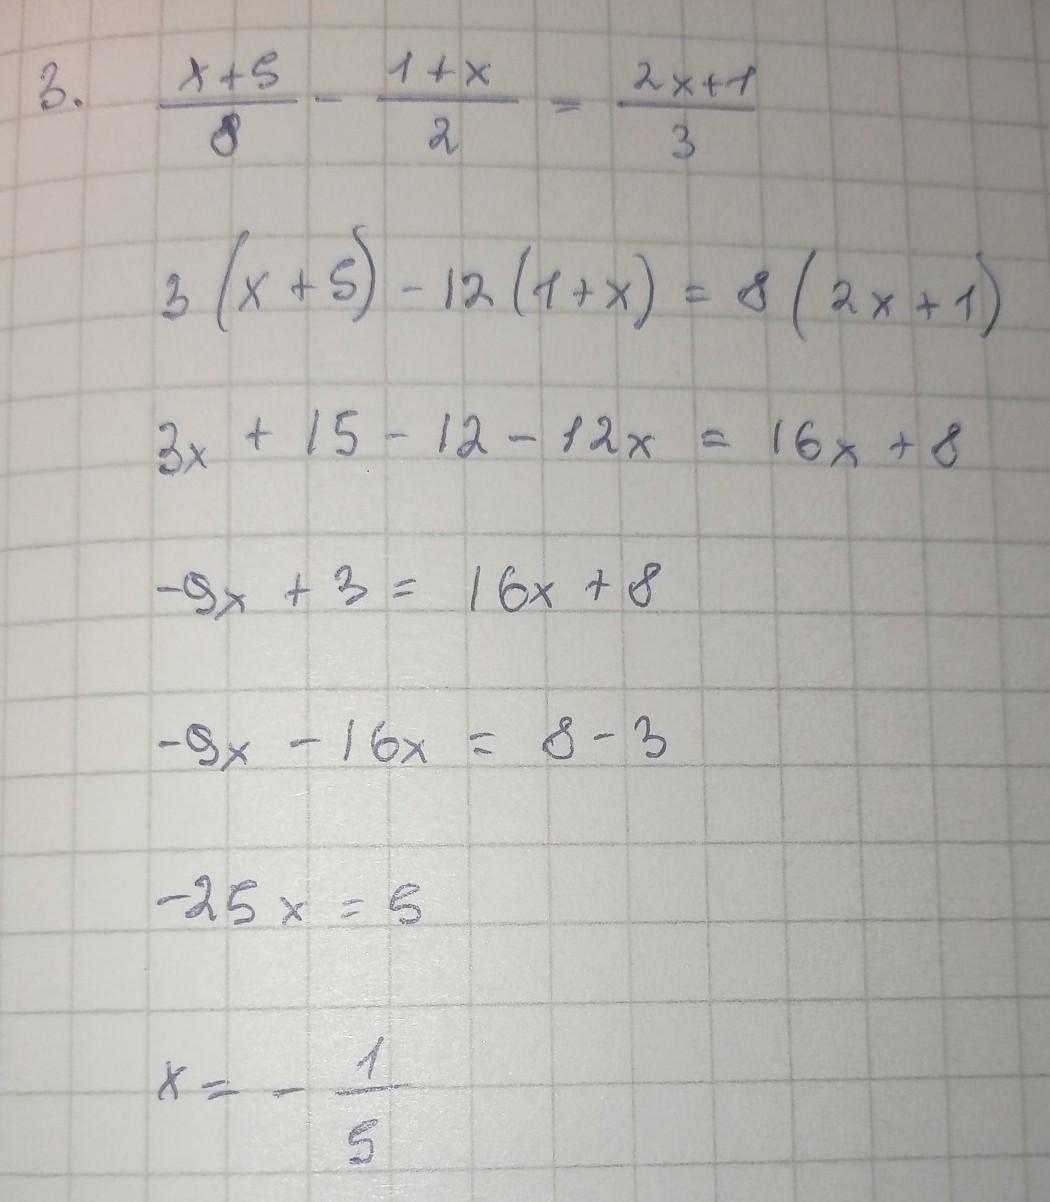 3. (x+5)/8 - (1+x)/2 = (2x+1)/3
3(x+5) - 12(1+x) = 8(2x+1)
3x + 15 - 12 - 12x = 16x + 8
-9x + 3 = 16x + 8
-9x - 16x = 8 - 3
-25x = 5
x = - 1/5